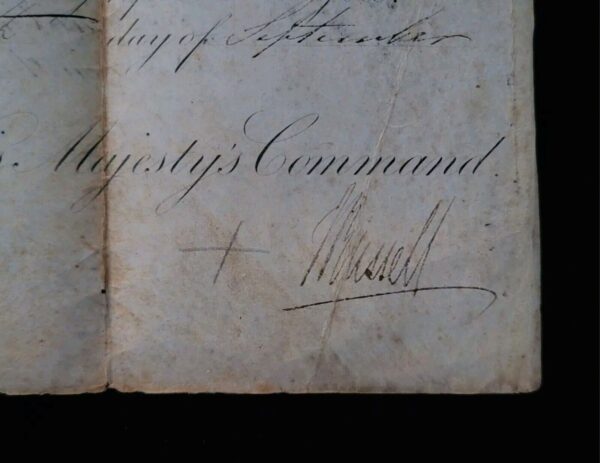 day of September
Majesty's Command.
J Russell